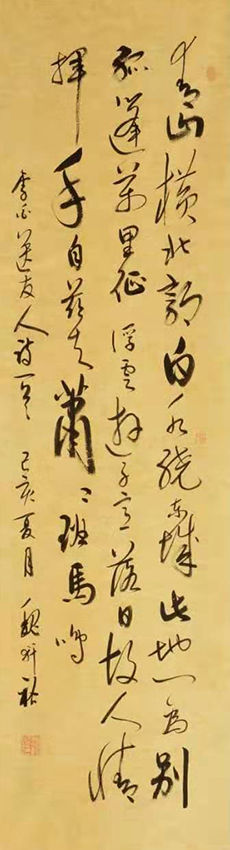 青山横北郭白水绕东城此地一为别
孤蓬万里征浮云游子意落日故人情
挥手自兹去萧〻班马鸣
李白送友人诗一首 己亥夏月 魏